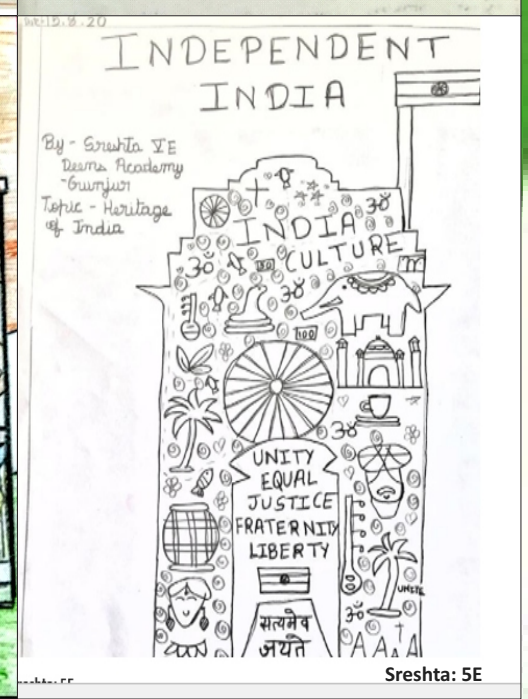 15.8.20
INDEPENDENT
INDIA
By - Sreshta V E
Deens Academy
-Gunjur
Topic - Heritage
of India
ॐ
INDIA
CULTURE
ॐ
ॐ
100
ॐ
UNITY
EQUAL
JUSTICE
FRATERNITY
LIBERTY
UNITE
ॐ
सत्यमेव
जयते
Sreshta: 5E